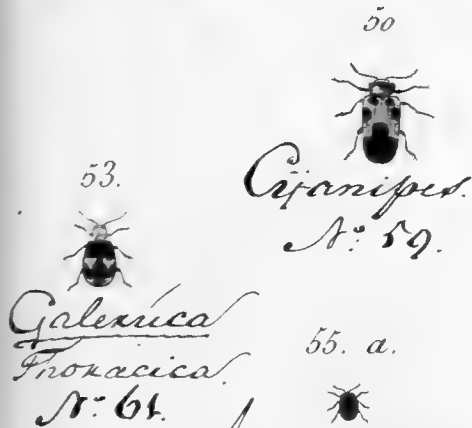 50
Cyanipes.
N: 59.
53.
Galerúca
Thoracica.
N: 61.
55. a.